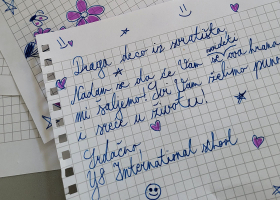 Draga deco iz svratišta,
Nadam se da će Vam se svideti ova hrana
mi šaljemo! Svi Vam želimo puno
i sreće u životu!
Srdačno,
Y8 International school